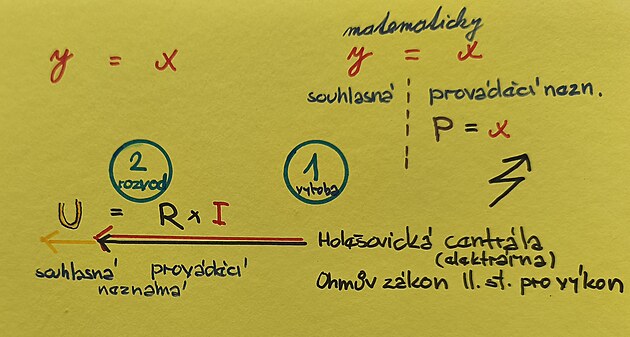 matematicky
y = x
y = x
souhlasná
prováděcí nezn.
P = x
2
rozvod
1
výroba
U = R x I
souhlasná prováděcí
neznámá
Holešovická centrála
(elektrárna)
Ohmův zákon II. st. pro výkon